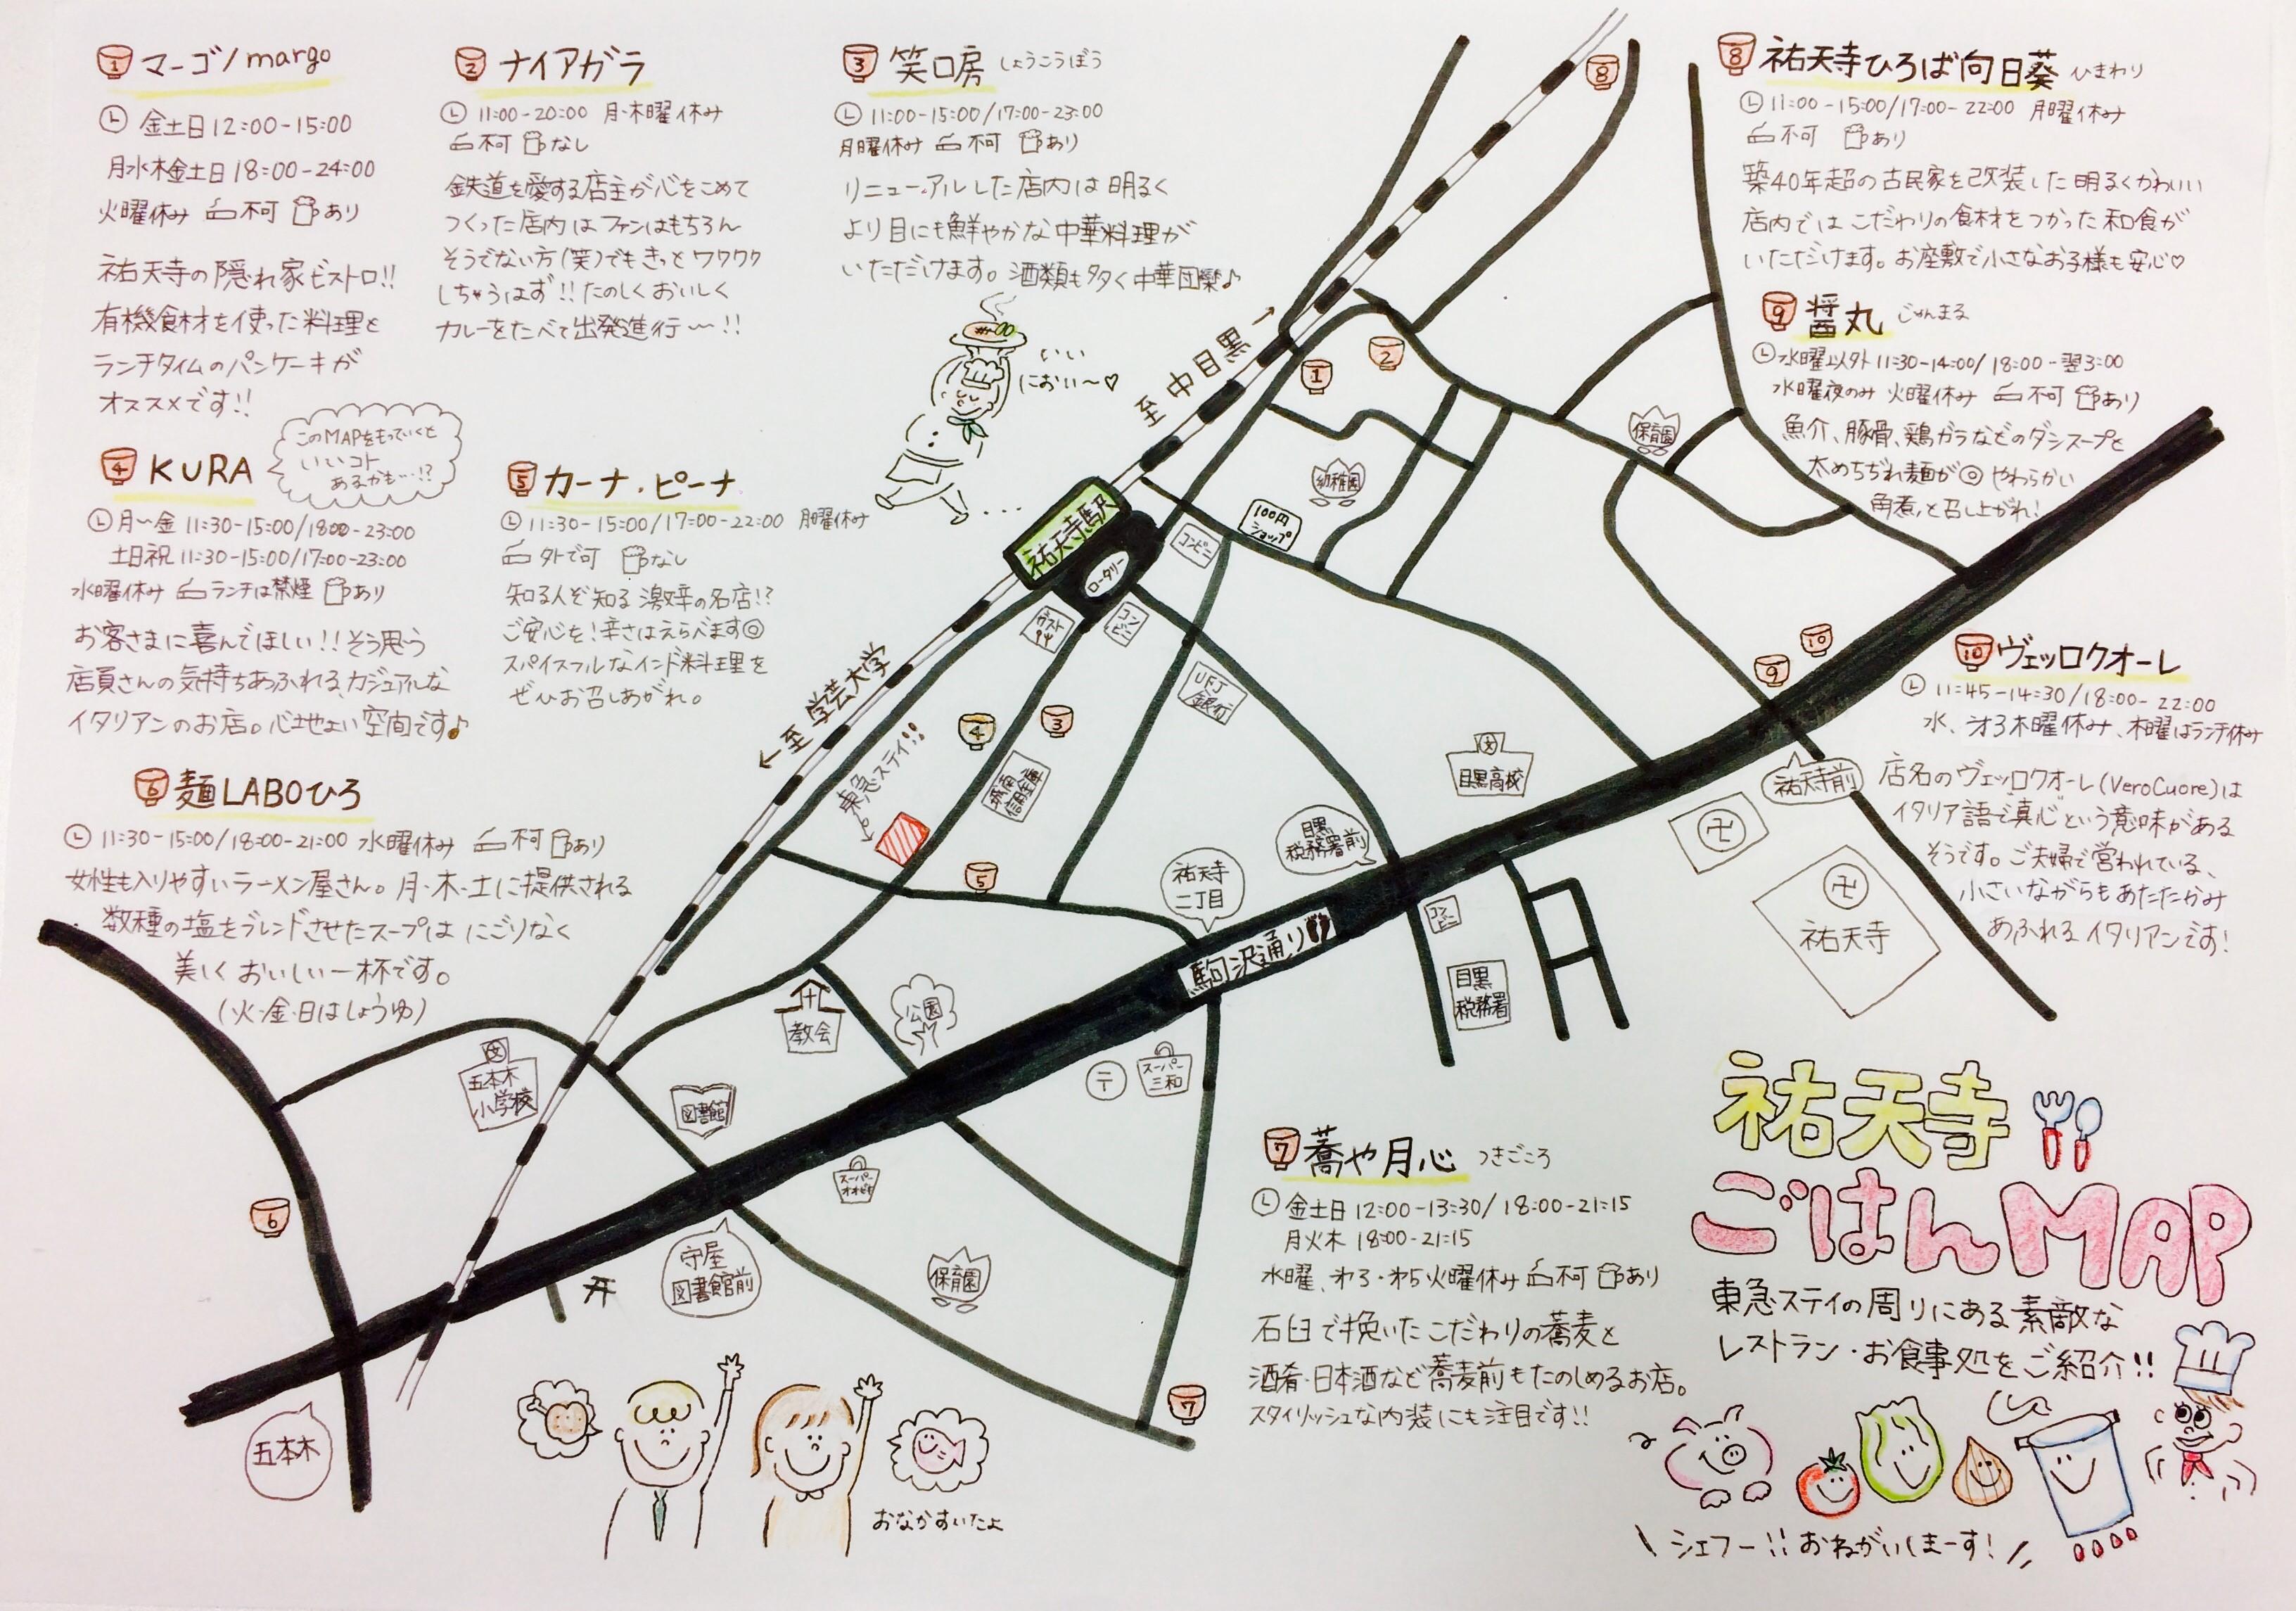 1 マーゴ/margo
金土日12:00-15:00
月水木金土日18:00-24:00
火曜休み 不可 あり
祐天寺の隠れ家ビストロ!!
有機食材を使った料理と
ランチタイムのパンケーキが
オススメです!!
2 ナイアガラ
11:00-20:00 月・木曜休み
不可 なし
鉄道を愛する店主が心をこめて
つくった店内はファンはもちろん
そうでない方(笑)でもきっとワクワク
しちゃうはず!!たのしくおいしく
カレーをたべて出発進行〜!!
3 笑口房 しょうこうぼう
11:00-15:00/17:00-23:00
月曜休み 不可 あり
リニューアルした店内は明るく
より目にも鮮やかな中華料理が
いただけます。酒類も多く中華団欒♪
いい
におい〜♡
このMAPをもっていくと
いいコト
あるかも…!?
4 KURA
月〜金 11:30-15:00/18:00-23:00
土日祝 11:30-15:00/17:00-23:00
水曜休み ランチは禁煙 あり
お客さまに喜んでほしい!!そう思う
店員さんの気持ちあふれるカジュアルな
イタリアンのお店。心地よい空間です♪
5 カーナ・ピーナ
11:30-15:00/17:00-22:00 月曜休み
外で可 なし
知る人ぞ知る激辛の名店!?
ご安心を!辛さはえらべます◎
スパイスフルなインド料理を
ぜひお召しあがれ。
6 麺LABOひろ
11:30-15:00/18:00-21:00 水曜休み 不可 あり
女性も入りやすいラーメン屋さん。月・木・土に提供される
数種の塩をブレンドさせたスープは にごりなく
美しくおいしい一杯です。
(火・金・日はしょうゆ)
8 祐天寺ひろば向日葵 ひまわり
11:00-15:00/17:00-22:00 月曜休み
不可 あり
築40年超の古民家を改装した明るくかわいい
店内ではこだわりの食材をつかった和食が
いただけます。お座敷で小さなお子様も安心♡
9 醤丸 じゃんまる
水曜以外11:30-14:00/18:00-翌3:00
水曜夜のみ 火曜休み 不可 あり
魚介、豚骨、鶏ガラなどのダシスープと
太めちぢれ麺が◎やわらかい
角煮と召し上がれ!
10 ヴェッロクオーレ
11:45-14:30/18:00-22:00
水、才3木曜休み、木曜はランチ休み
店名のヴェッロクオーレ(VeroCuore)は
イタリア語で真心という意味がある
そうです。ご夫婦で営われている、
小さいながらもあたたかみ
あふれるイタリアンです!
7 蕎や月心 つきごころ
金土日 12:00-13:30/18:00-21:15
月火木 18:00-21:15
水曜、才3・才5火曜休み 不可 あり
石臼で挽いたこだわりの蕎麦と
酒肴・日本酒など蕎麦前もたのしめるお店。
スタイリッシュな内装にも注目です!!
8
至中目黒→
1
2
保育園
幼稚園
100円
ショップ
コンビニ
祐天寺駅
ロータリー
ガスト
コンビニ
UFJ
銀行
←至学芸大学
東急ステイ!!
4
3
城南
信用金庫
5
10
9
目黒高校
祐天寺前
卍
卍
祐天寺
目黒
税務署前
祐天寺
二丁目
駒沢通り
コンビニ
目黒
税務署
教会
公園
〒
スーパー
三和
五本木
小学校
図書館
スーパー
オオゼキ
6
守屋
図書館前
保育園
7
五本木
おなかすいたよ
祐天寺
ごはんMAP
東急ステイの周りにある素敵な
レストラン・お食事処をご紹介!!
\ シェフー!! おねがいしまーす! //